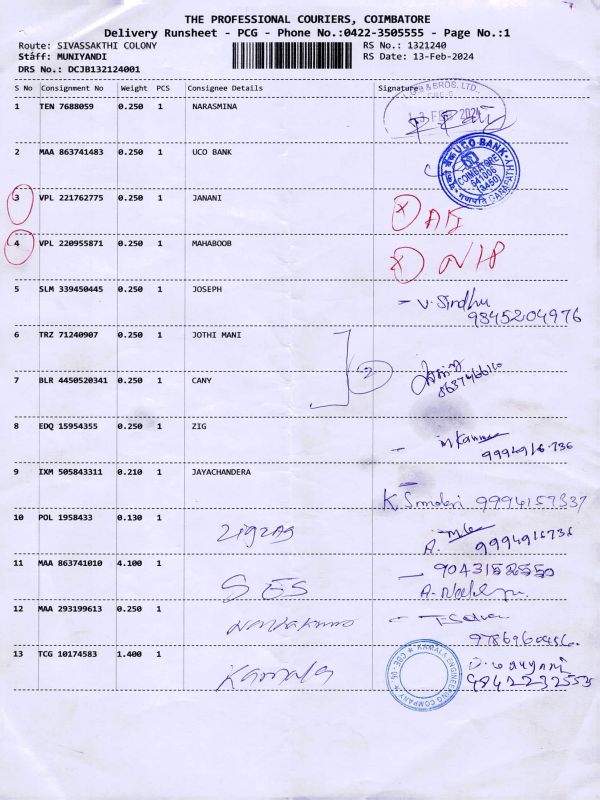 THE PROFESSIONAL COURIERS, COIMBATORE
Delivery Runsheet - PCG - Phone No.:0422-3505555 - Page No.:1
Route: SIVASSAKTHI COLONY RS No.: 1321240
Staff: MUNIYANDI RS Date: 13-Feb-2024
DRS No.: DCJB132124001
S No Consignment No Weight PCS Consignee Details Signature
& BROS. LTD.
1 TEN 7688059 0.250 1 NARASMINA
FEB 2024
2 MAA 863741483 0.250 1 UCO BANK
UCO BANK
COIMBATORE
641006
(3450)
GANAPATHY
3 VPL 221762775 0.250 1 JANANI
4 VPL 220955871 0.250 1 MAHABOOB
5 SLM 339450445 0.250 1 JOSEPH - V. Sindhu
9345204976
6 TRZ 71240907 0.250 1 JOTHI MANI
2
7 BLR 4450520341 0.250 1 CANY
8 EDQ 15954355 0.250 1 ZIG
9 IXM 505843311 0.210 1 JAYACHANDERA
K 9994157337
10 POL 1958433 0.130 1 zigzag
A. 9994916736
11 MAA 863741010 4.100 1 SES
12 MAA 293199613 0.250 1
13 TCG 10174583 1.400 1 Kamala
KAMALA ENGINEERING COMPANY ★ CBE-06 ★
9842232555